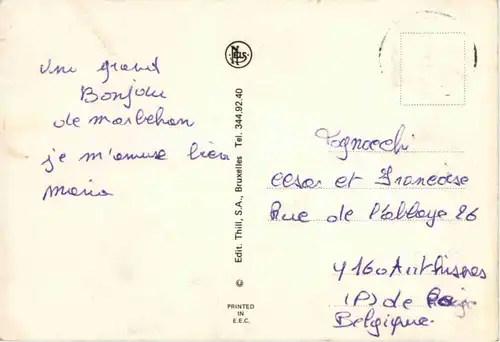 Un grand
Bonjour
de marbehan
je m'amuse bien
maria
NELS
© Edit. Thill, S.A., Bruxelles Tel. 344.92.40
PRINTED
IN
E.E.C.
Tognocchi
cesar et Francoise
Rue de l'abbaye 26
4160 Anthisnes
(P) de
Belgique.